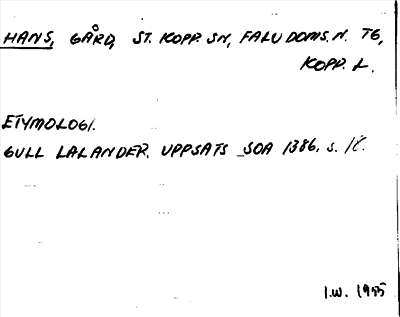 HANS, GÅRD, ST. KOPP. SN, FALU DOMS. N. TG,
KOPP. L.
ETYMOLOGI.
GULL LALANDER. UPPSATS SOA 1386, S.
I.W. 1955